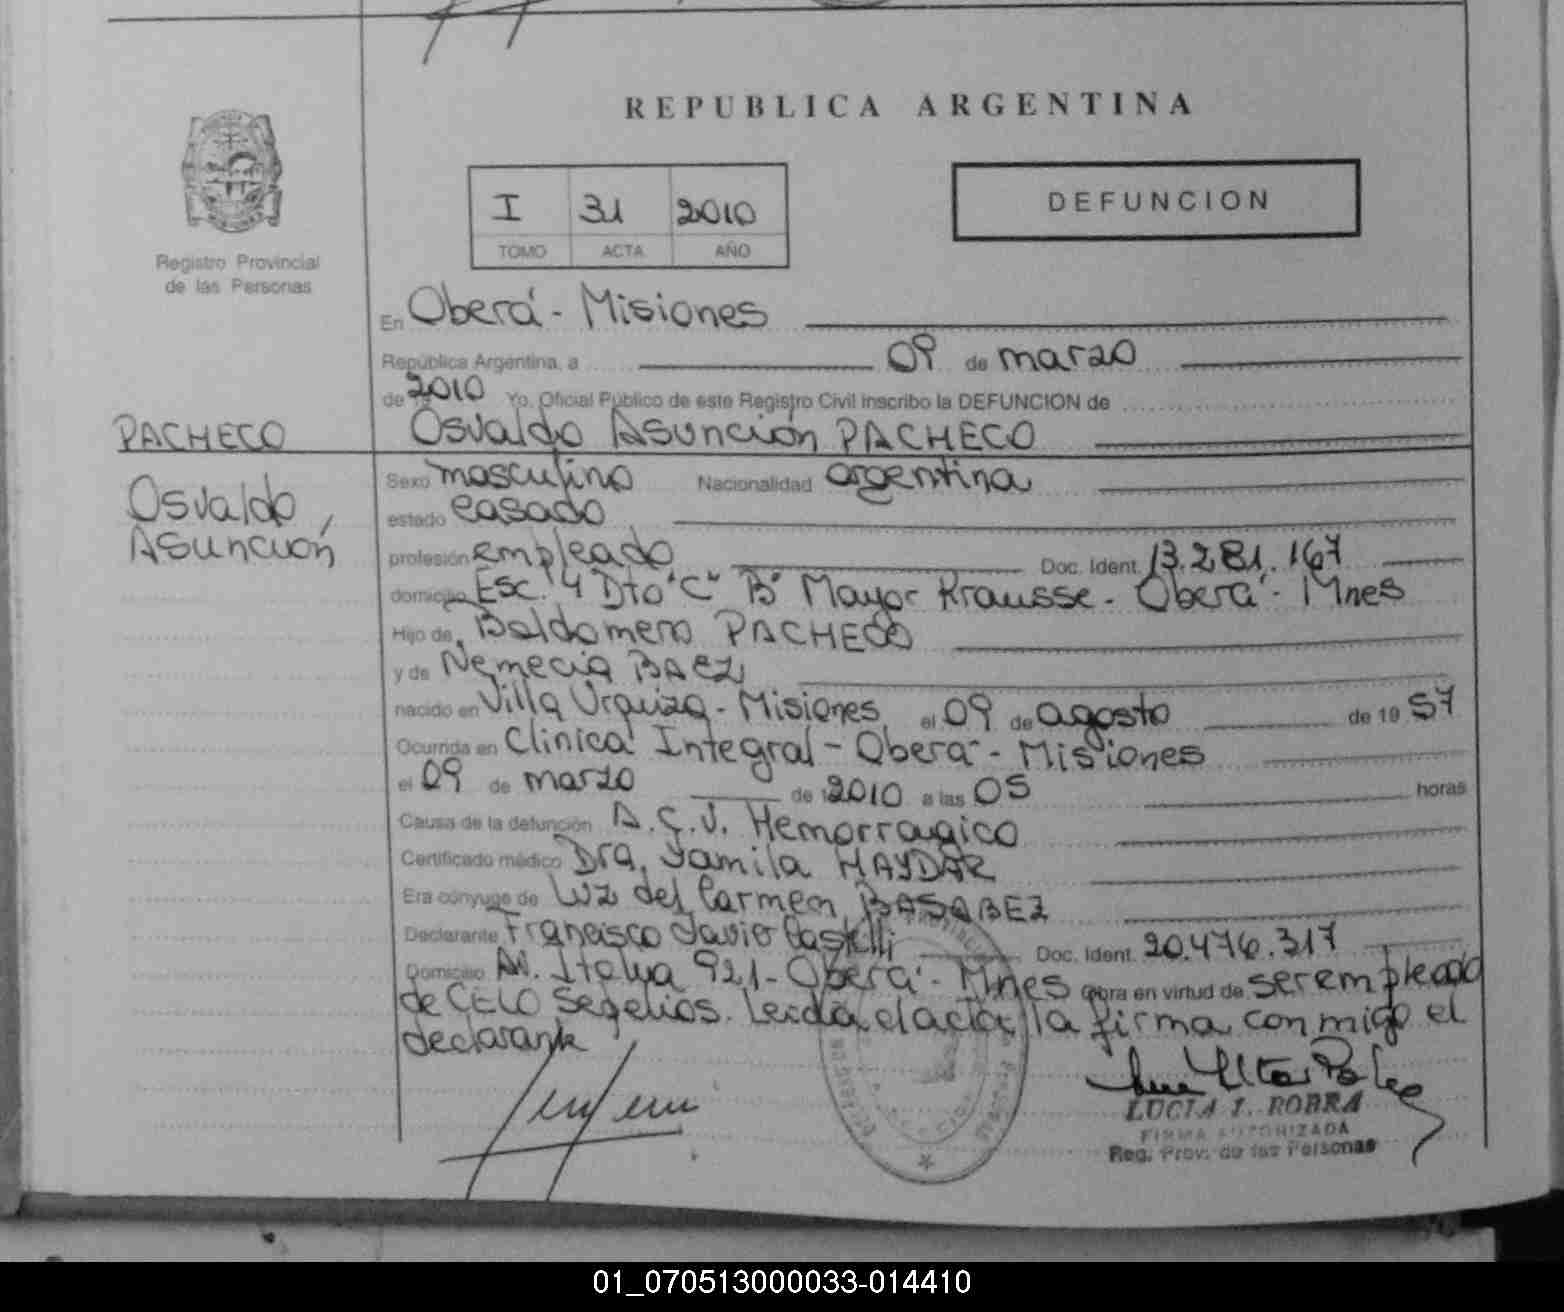 REPUBLICA ARGENTINA
I 31 2010
TOMO ACTA AÑO
DEFUNCION
Registro Provincial
de las Personas
PACHECO
Osvaldo,
Asunción
En Oberá - Misiones
República Argentina, a 09 de marzo
de 2010 Yo, Oficial Público de este Registro Civil inscribo la DEFUNCION de
Osvaldo Asunción PACHECO
Sexo masculino Nacionalidad argentina
estado casado
profesión empleado Doc. Ident. 13.281.167
domicilio Esc. 4 Dto "C" Bº Mayor Krausse - Oberá - Mnes
Hijo de Baldomero PACHECO
y de Nemecia BAEZ
nacido en Villa Urquiza - Misiones el 09 de agosto de 19 57
Ocurrida en Clínica Integral - Oberá - Misiones
el 09 de marzo de 2010 a las 05 horas
Causa de la defunción A.C.V. Hemorragico
Certificado médico Dra. Yamila HAYDAR
Era cónyuge de Luz del Carmen BASABEZ
Declarante Francisco Javier Castelli Doc. Ident. 20.476.317
Domicilio Av. Italia 921 - Oberá - Mnes Obra en virtud de ser empleado
de CELO Sepelios. Leída el acta, la firma conmigo el
declarante
LUCIA I. ROBRA
FIRMA AUTORIZADA
Reg. Prov. de las Personas
01_070513000033-014410